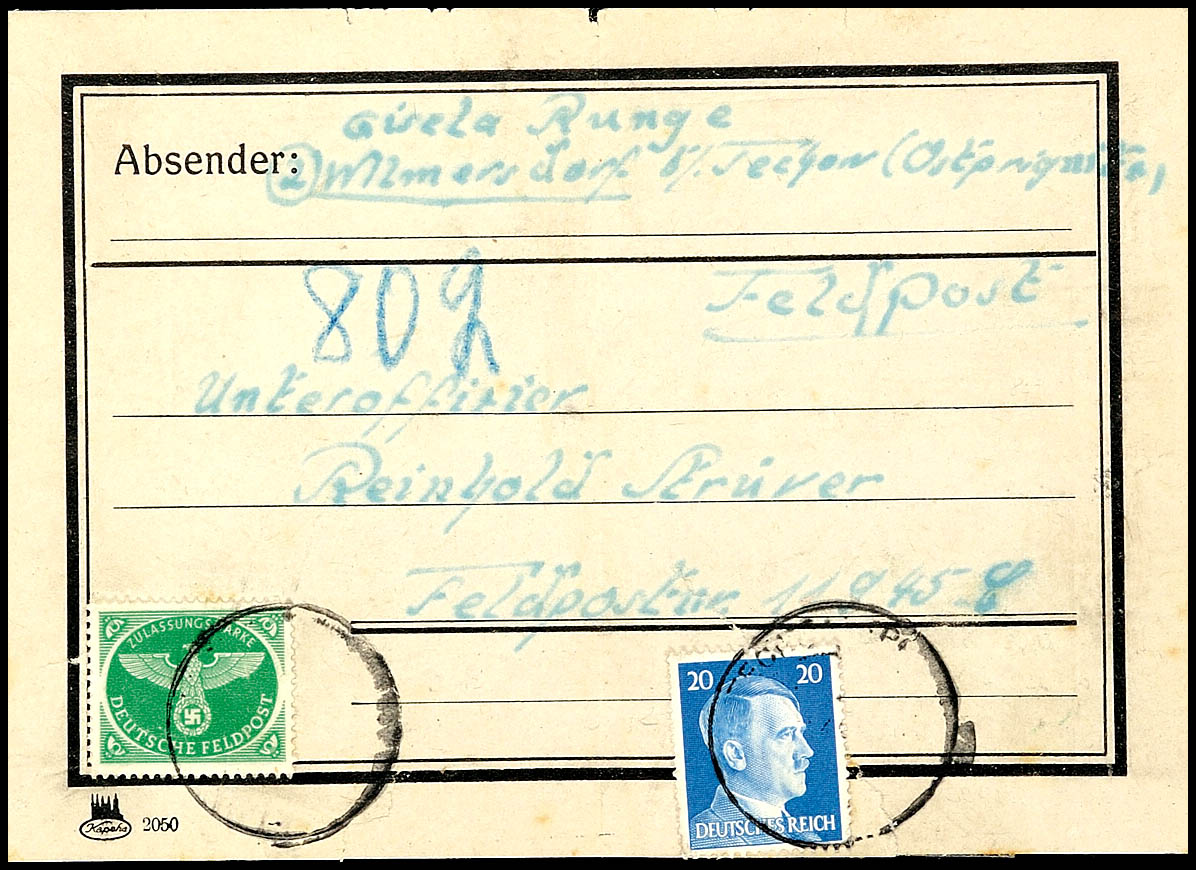 Gisela Runge
Absender: (2) Wilmersdorf b/. Techow (Ostprignitz)
80 g
Feldpost
Unteroffizier
Reinhold Strüver
Feldpostnr.
ZULASSUNGSMARKE
DEUTSCHE FELDPOST
20 20
DEUTSCHES REICH
Kapehs 2050